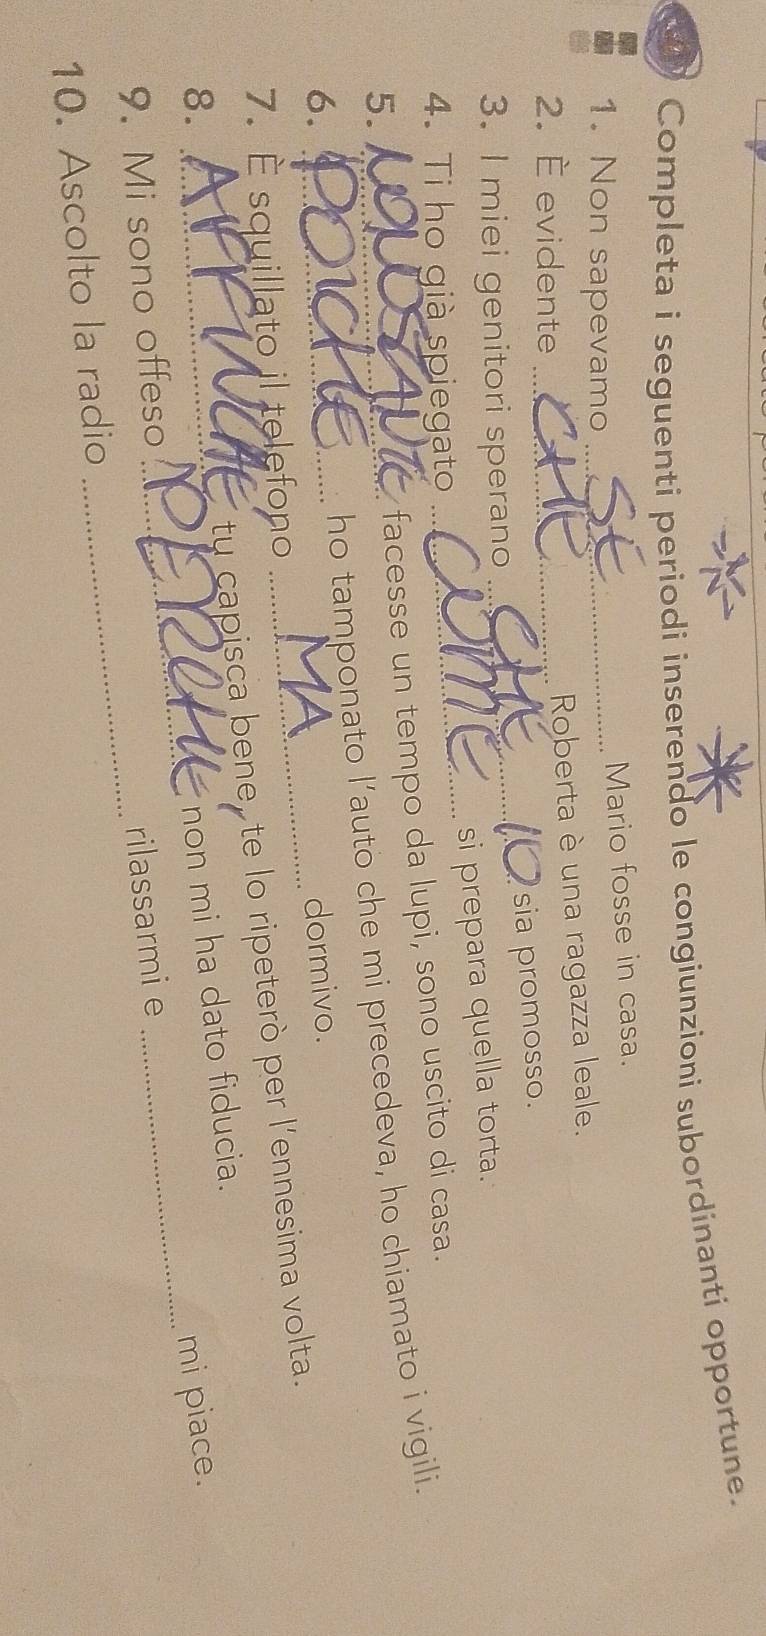 Completa i seguenti periodi inserendo le congiunzioni subordinanti opportune.
1. Non sapevamo SE Mario fosse in casa.
2. È evidente CHE Roberta è una ragazza leale.
3. I miei genitori sperano CHE IO sia promosso.
4. Ti ho già spiegato COME si prepara quella torta.
5. NONOSTANTE facesse un tempo da lupi, sono uscito di casa.
6. POICHE ho tamponato l'auto che mi precedeva, ho chiamato i vigili.
7. È squillato il telefono MA dormivo.
8. AFFINCHE tu capisca bene, te lo ripeterò per l'ennesima volta.
9. Mi sono offeso PERCHE non mi ha dato fiducia.
10. Ascolto la radio rilassarmi e mi piace.